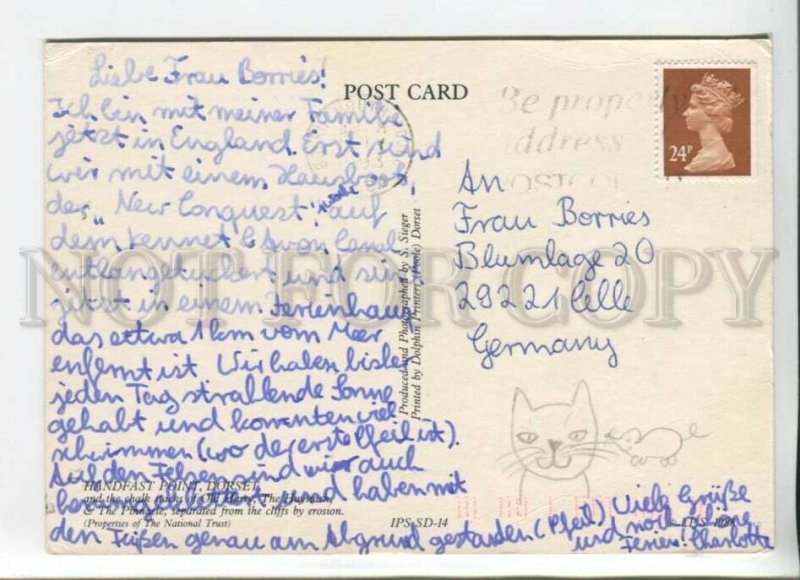 Liebe Frau Borries!
Ich bin mit meiner Familie
jetzt in England. Erst sind
wir mit einem Hausboot,
der „New Conquest“, auf
dem Kennet & Avon Canal
entlanggetuckert und sind
jetzt in einem Ferienhaus,
das etwa 1km vom Meer
enfernt ist. Wir haben bisher
jeden Tag strallende Sonne
gehabt und konnten viel
schwimmen (wo der erste Pfeil ist).
Auf den Felsen sind wir auch
und haben mit
den Füßen genau am Abgrund gestanden (Pfeil) Viele Grüße
und noch schöne
Ferien! Charlotte
POST CARD
Be properly
address
POSTCODE
24P
An
Frau Borries
Blumlage 20
29221 Celle
Germany
Produced and Photographed by S. Sieger
Printed by Dolphin Printers (Poole) Dorset
HANDFAST POINT, DORSET
and the chalk stacks of Old Harry, The Haystack,
& The Pinnacle, separated from the cliffs by erosion.
(Properties of The National Trust)
IPS SD-14
NOT FOR COPY